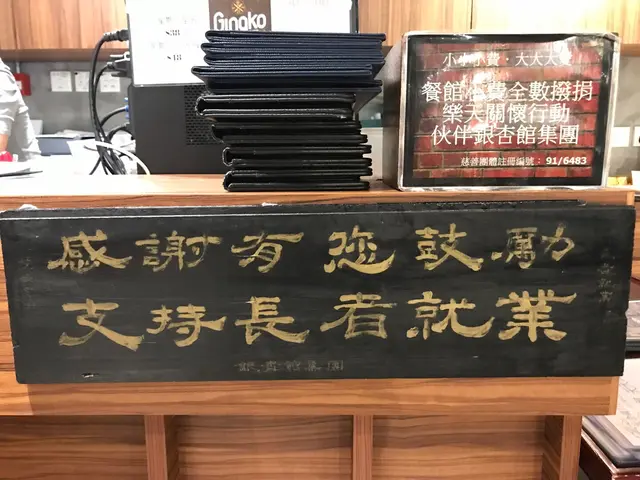 Gingko
$38
$48
餐館小費全數撥捐
樂天關懷行動
伙伴銀杏館集團
慈善團體註冊編號：91/6483
感謝有您鼓勵
支持長者就業
銀杏館集團